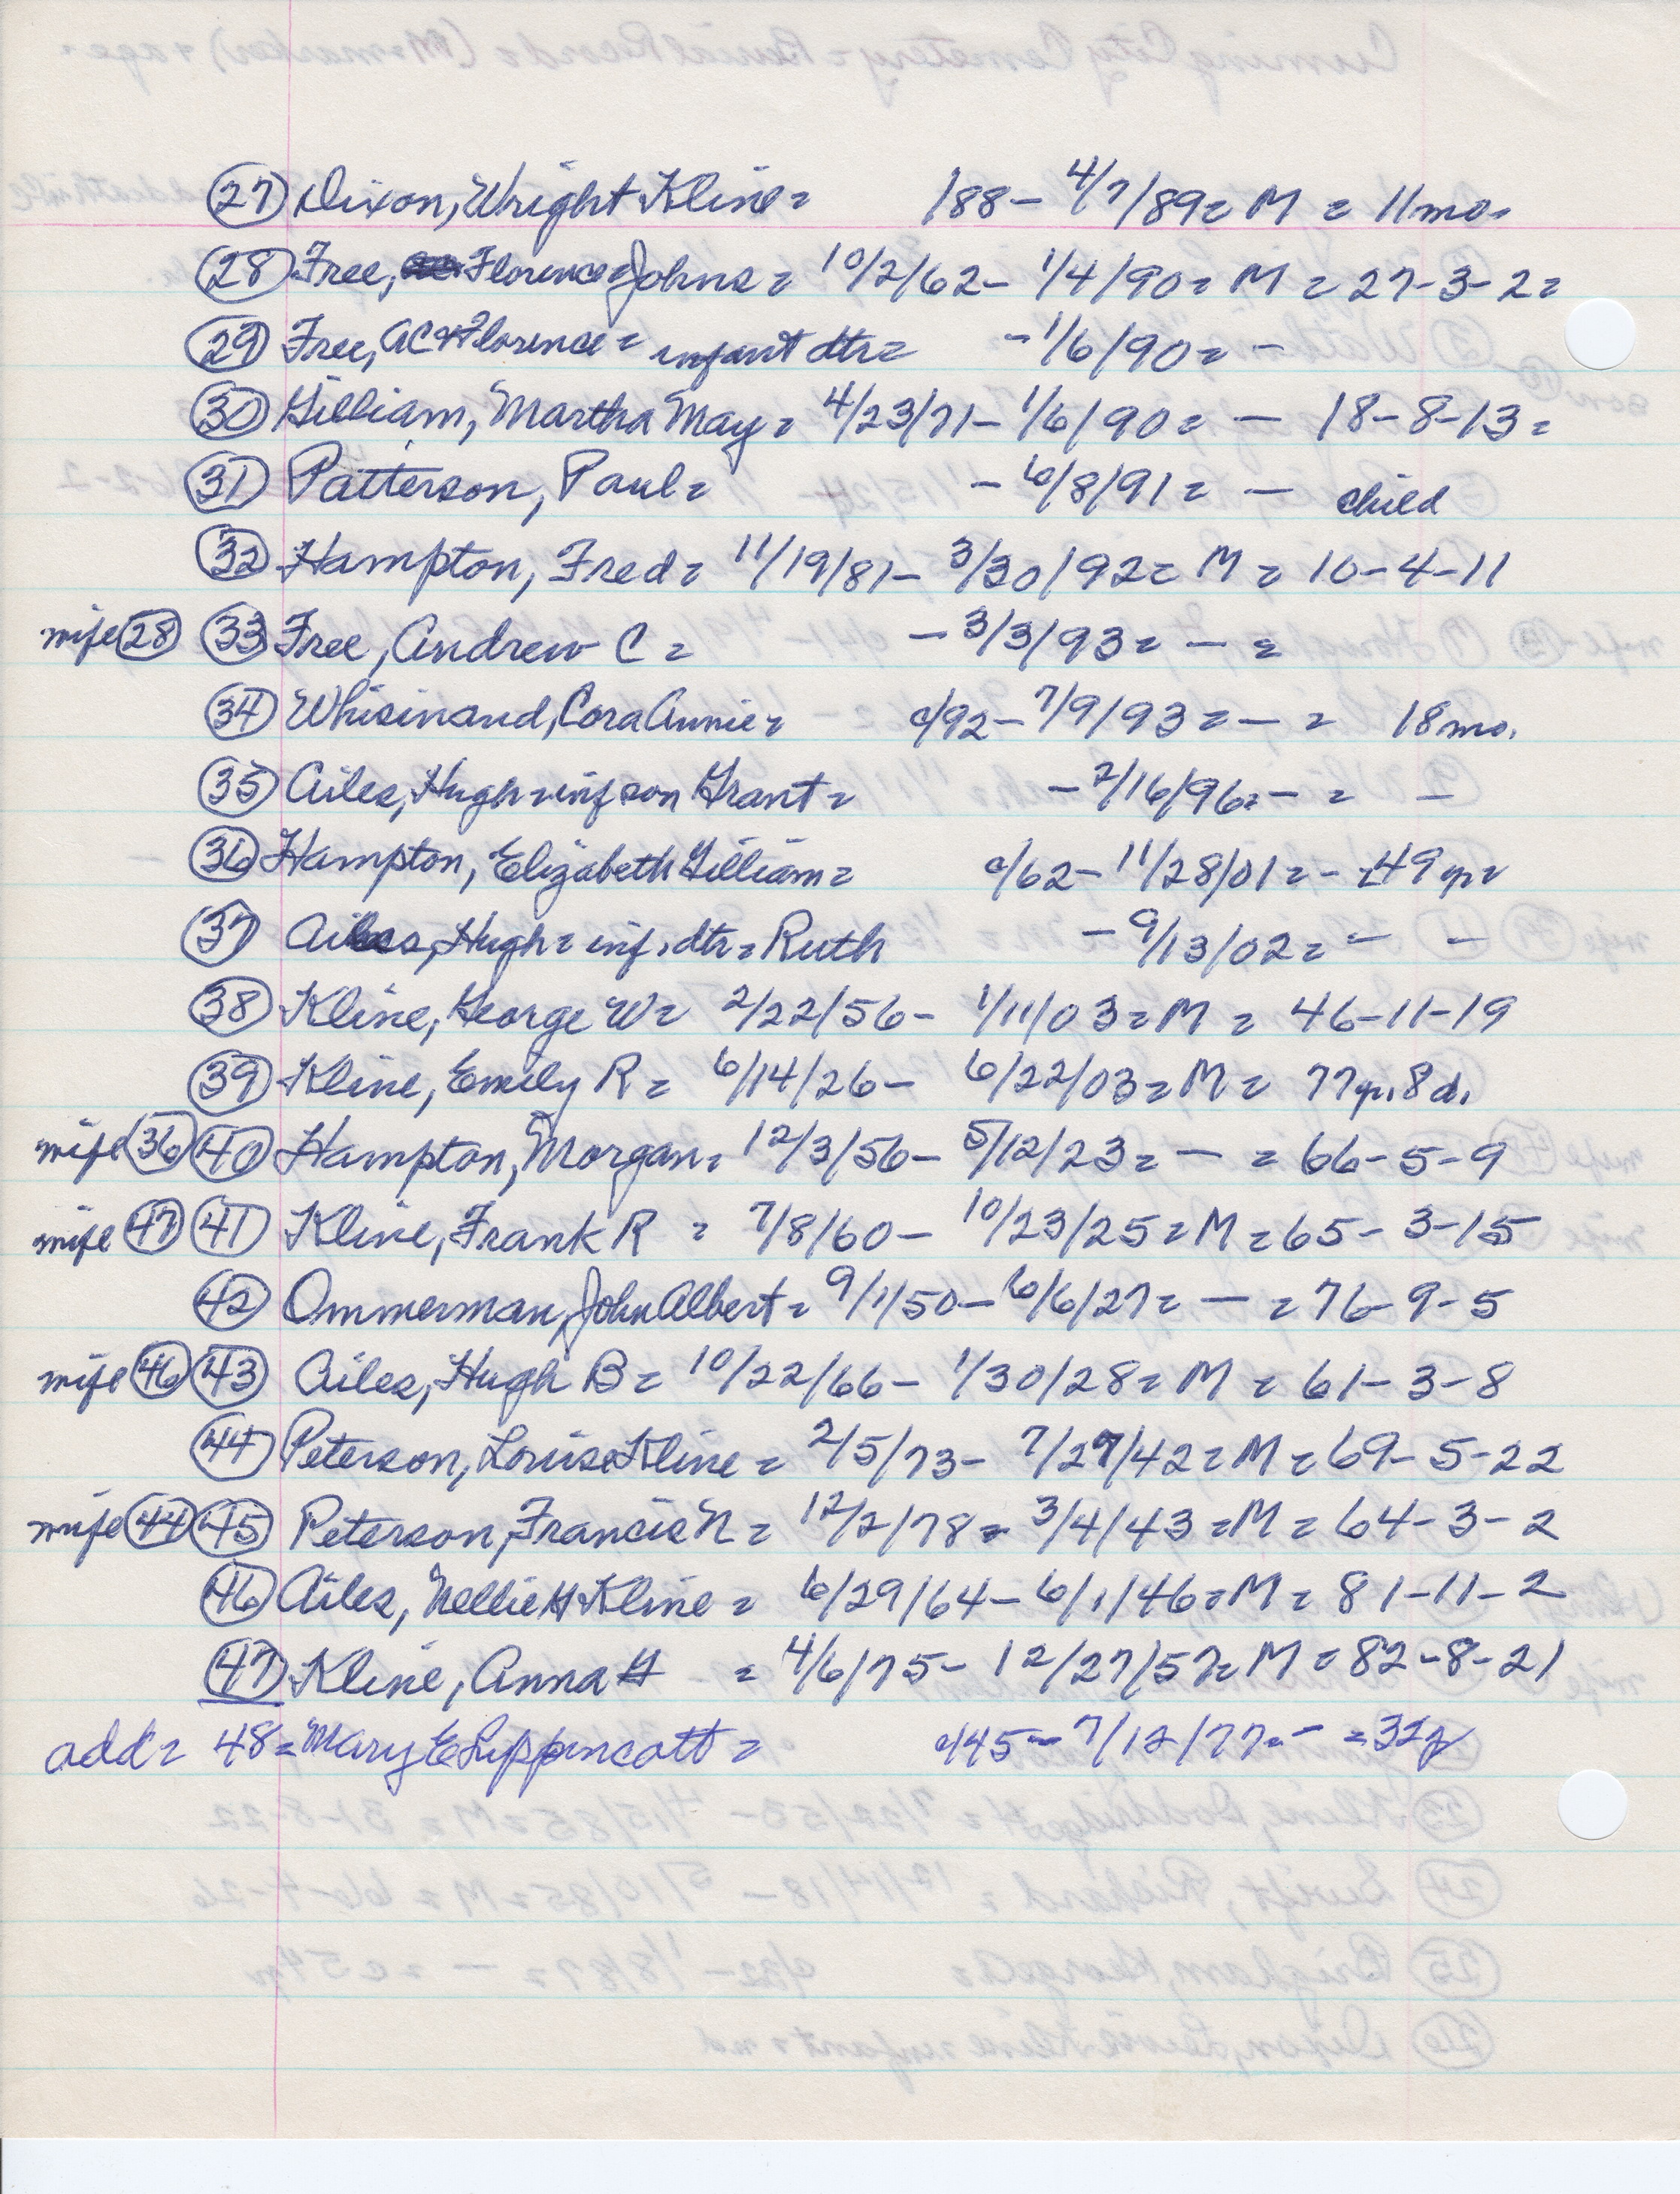 27 Dixon, Wright Kline = 188- 4/7/89 = M = 11 mo.
28 Free, Florence Johns = 10/2/62- 1/4/90 = M = 27-3-2 =
29 Free, AC & Florence = infant dtr = - 1/6/90 = -
30 Gilliam, Martha May = 4/23/71- 1/6/90 = - 18-8-13 =
31 Patterson, Paul = - 6/8/91 = - child
32 Hampton, Fred = 11/19/81- 3/30/92 = M = 10-4-11
wife 28 33 Free, Andrew C = - 3/3/93 = - =
34 Whisinand, Cora Annie = c/92- 7/9/93 = - = 18 mo.
35 Ailes, Hugh = inf son Grant = - 2/16/96 = - = -
36 Hampton, Elizabeth Gilliam = c/62- 11/28/01 = - ±49 yr =
37 Ailes, Hugh = inf. dtr = Ruth - 9/13/02 = - -
38 Kline, George W = 2/22/56- 1/11/03 = M = 46-11-19
39 Kline, Emily R = 6/14/26- 6/22/03 = M = 77 yr. 8 d.
wife 36 40 Hampton, Morgan = 12/3/56- 5/12/23 = - = 66-5-9
wife 47 41 Kline, Frank R = 7/8/60- 10/23/25 = M = 65-3-15
42 Ommerman, John Albert = 9/1/50- 6/6/27 = - = 76-9-5
wife 46 43 Ailes, Hugh B = 10/22/66- 1/30/28 = M = 61-3-8
44 Peterson, Louise Kline = 2/5/73- 7/27/42 = M = 69-5-22
wife 44 45 Peterson, Francis N = 12/2/78 = 3/4/43 = M = 64-3-2
46 Ailes, Nellie H Kline = 6/29/64- 6/1/46 = M = 81-11-2
47 Kline, Anna H = 4/6/75- 12/27/57 = M = 82-8-21
add = 48 = Mary E Lippincott = c/45- 7/12/77 = - = 32y